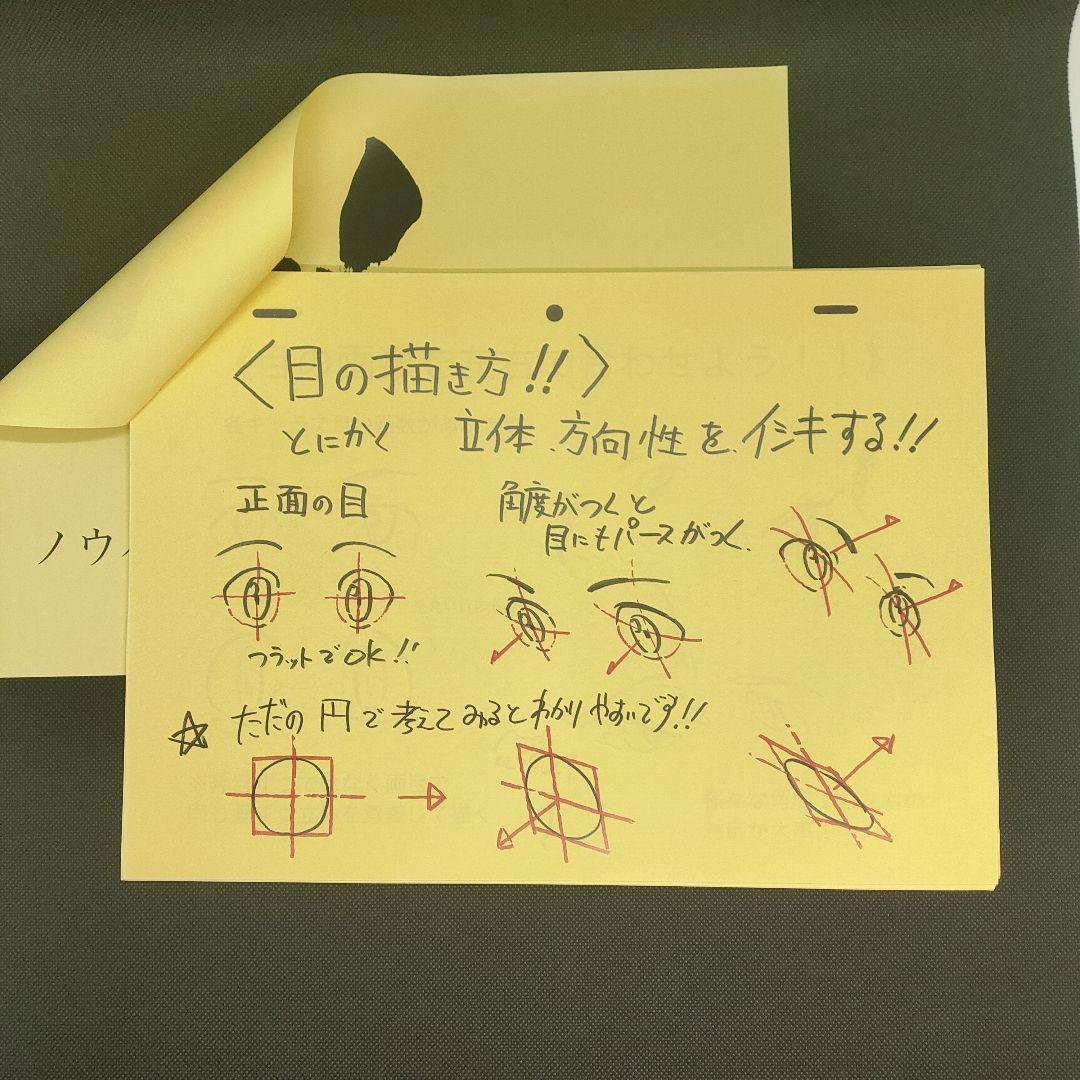 〈目の描き方!!〉
とにかく 立体、方向性を、イシキする!!
正面の目
角度がつくと
目にもパースがつく。
フラットでOK!!
☆ ただの円で考えてみるとわかりやすいです!!
ノウ